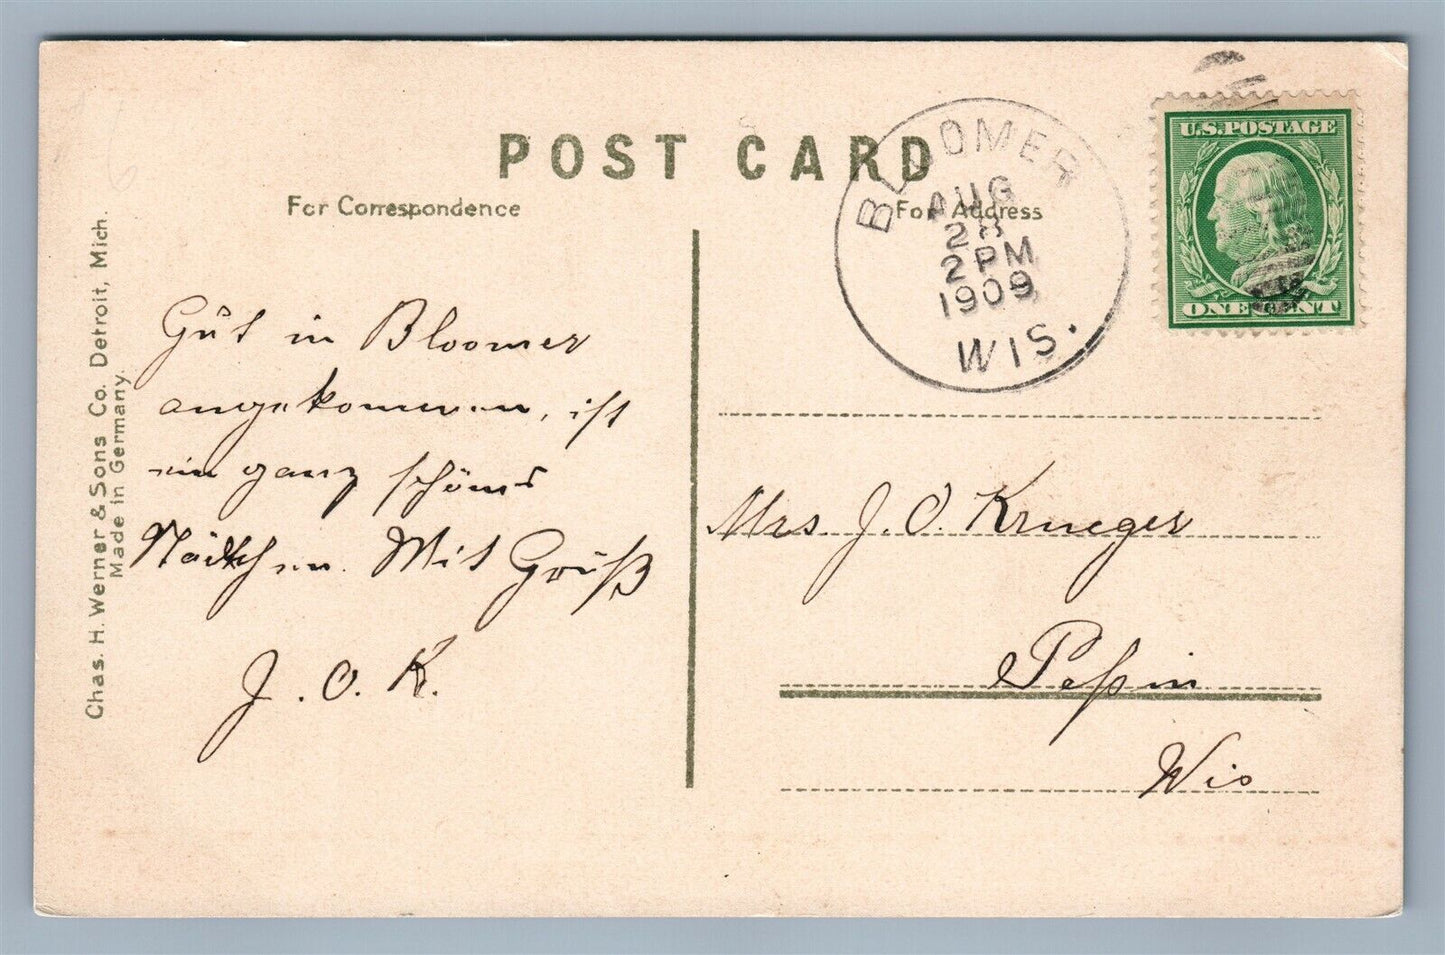 POST CARD
For Correspondence
For Address
BLOOMER
AUG
28
2 PM
1909
WIS.
U.S. POSTAGE
ONE CENT
Chas. H. Werner & Sons Co. Detroit, Mich.
Made in Germany.
Gut in Bloomer
angekommen, ist
ein ganz schönes
Städtchen. Mit Gruß
J. O. K.
Mrs. J. O. Krueger
Pepin
Wis